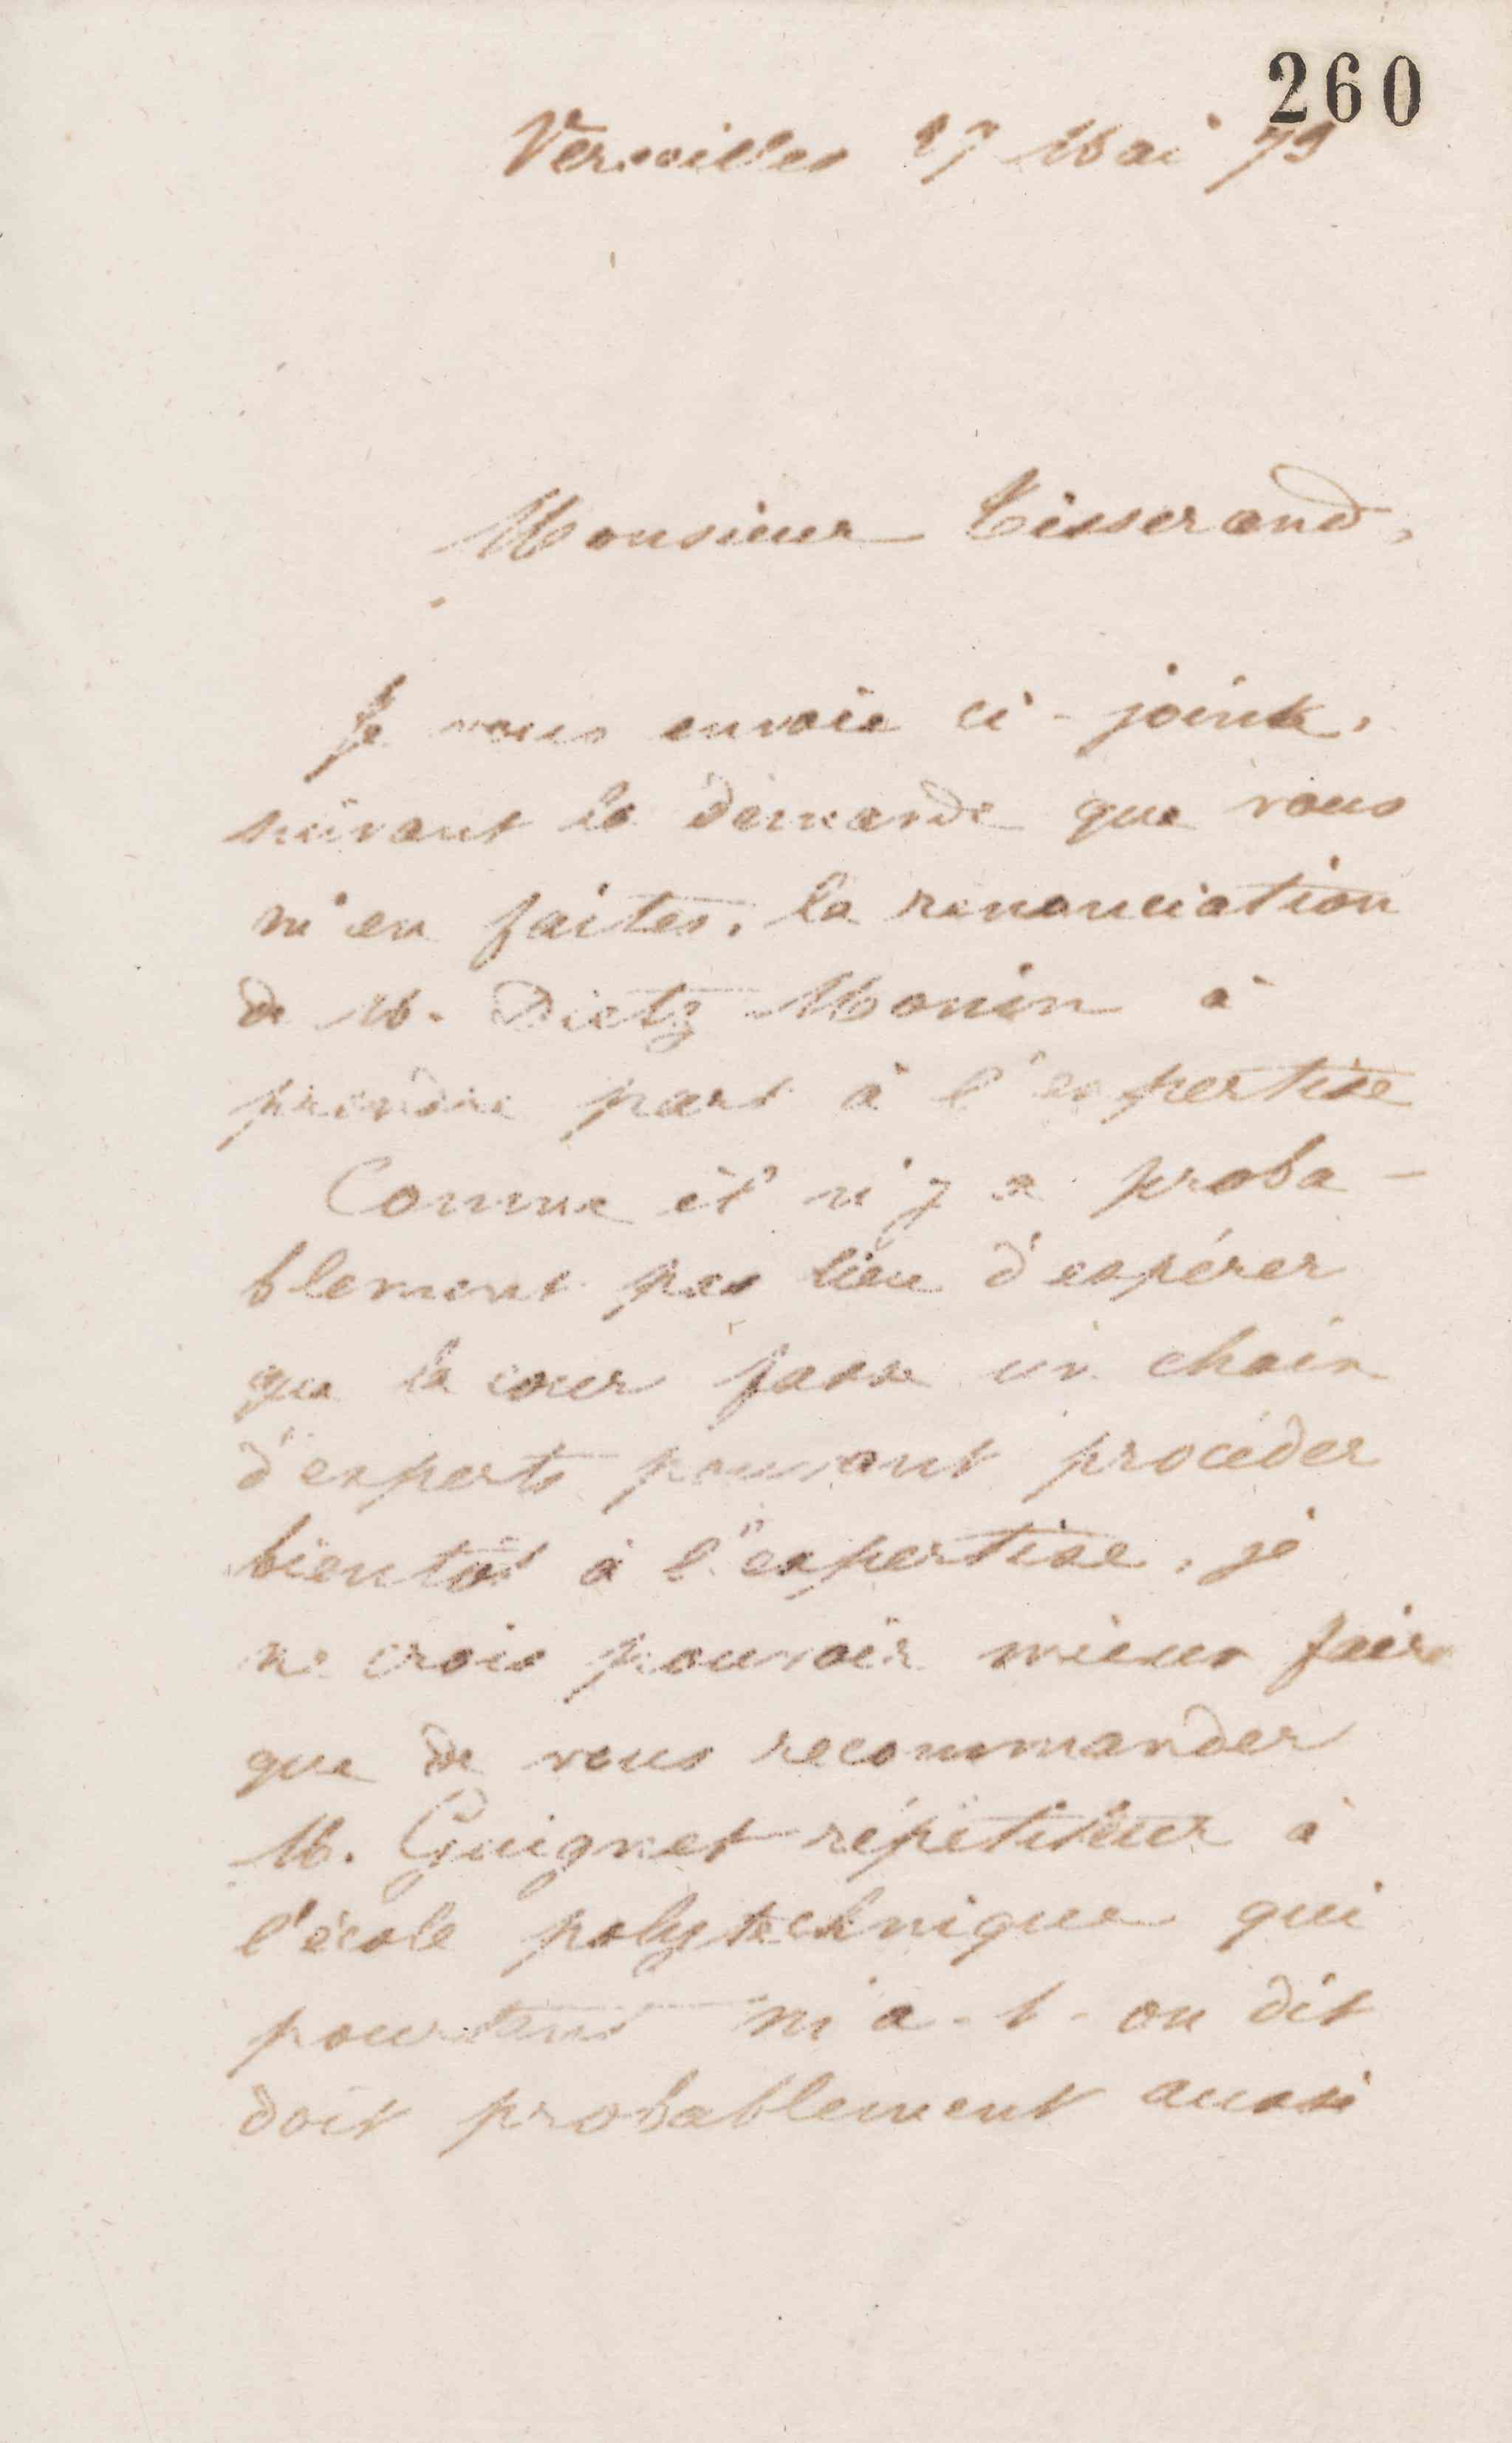 260
Versailles 27 Mai 79
Monsieur Tisserand,
Je vous envoie ci-joint,
suivant la demande que vous
m'en faites, la renonciation
de M. Dietz Monin à
prendre part à l'expertise
Comme il n'y a proba-
blement pas lieu d'espérer
que la cour fasse un choix
d'experts pouvant procéder
bientôt à l'expertise, je
ne crois pouvoir mieux faire
que de vous recommander
M. Guignet répétiteur à
l'école polytechnique qui
pourtant m'a-t-on dit
doit probablement aussi